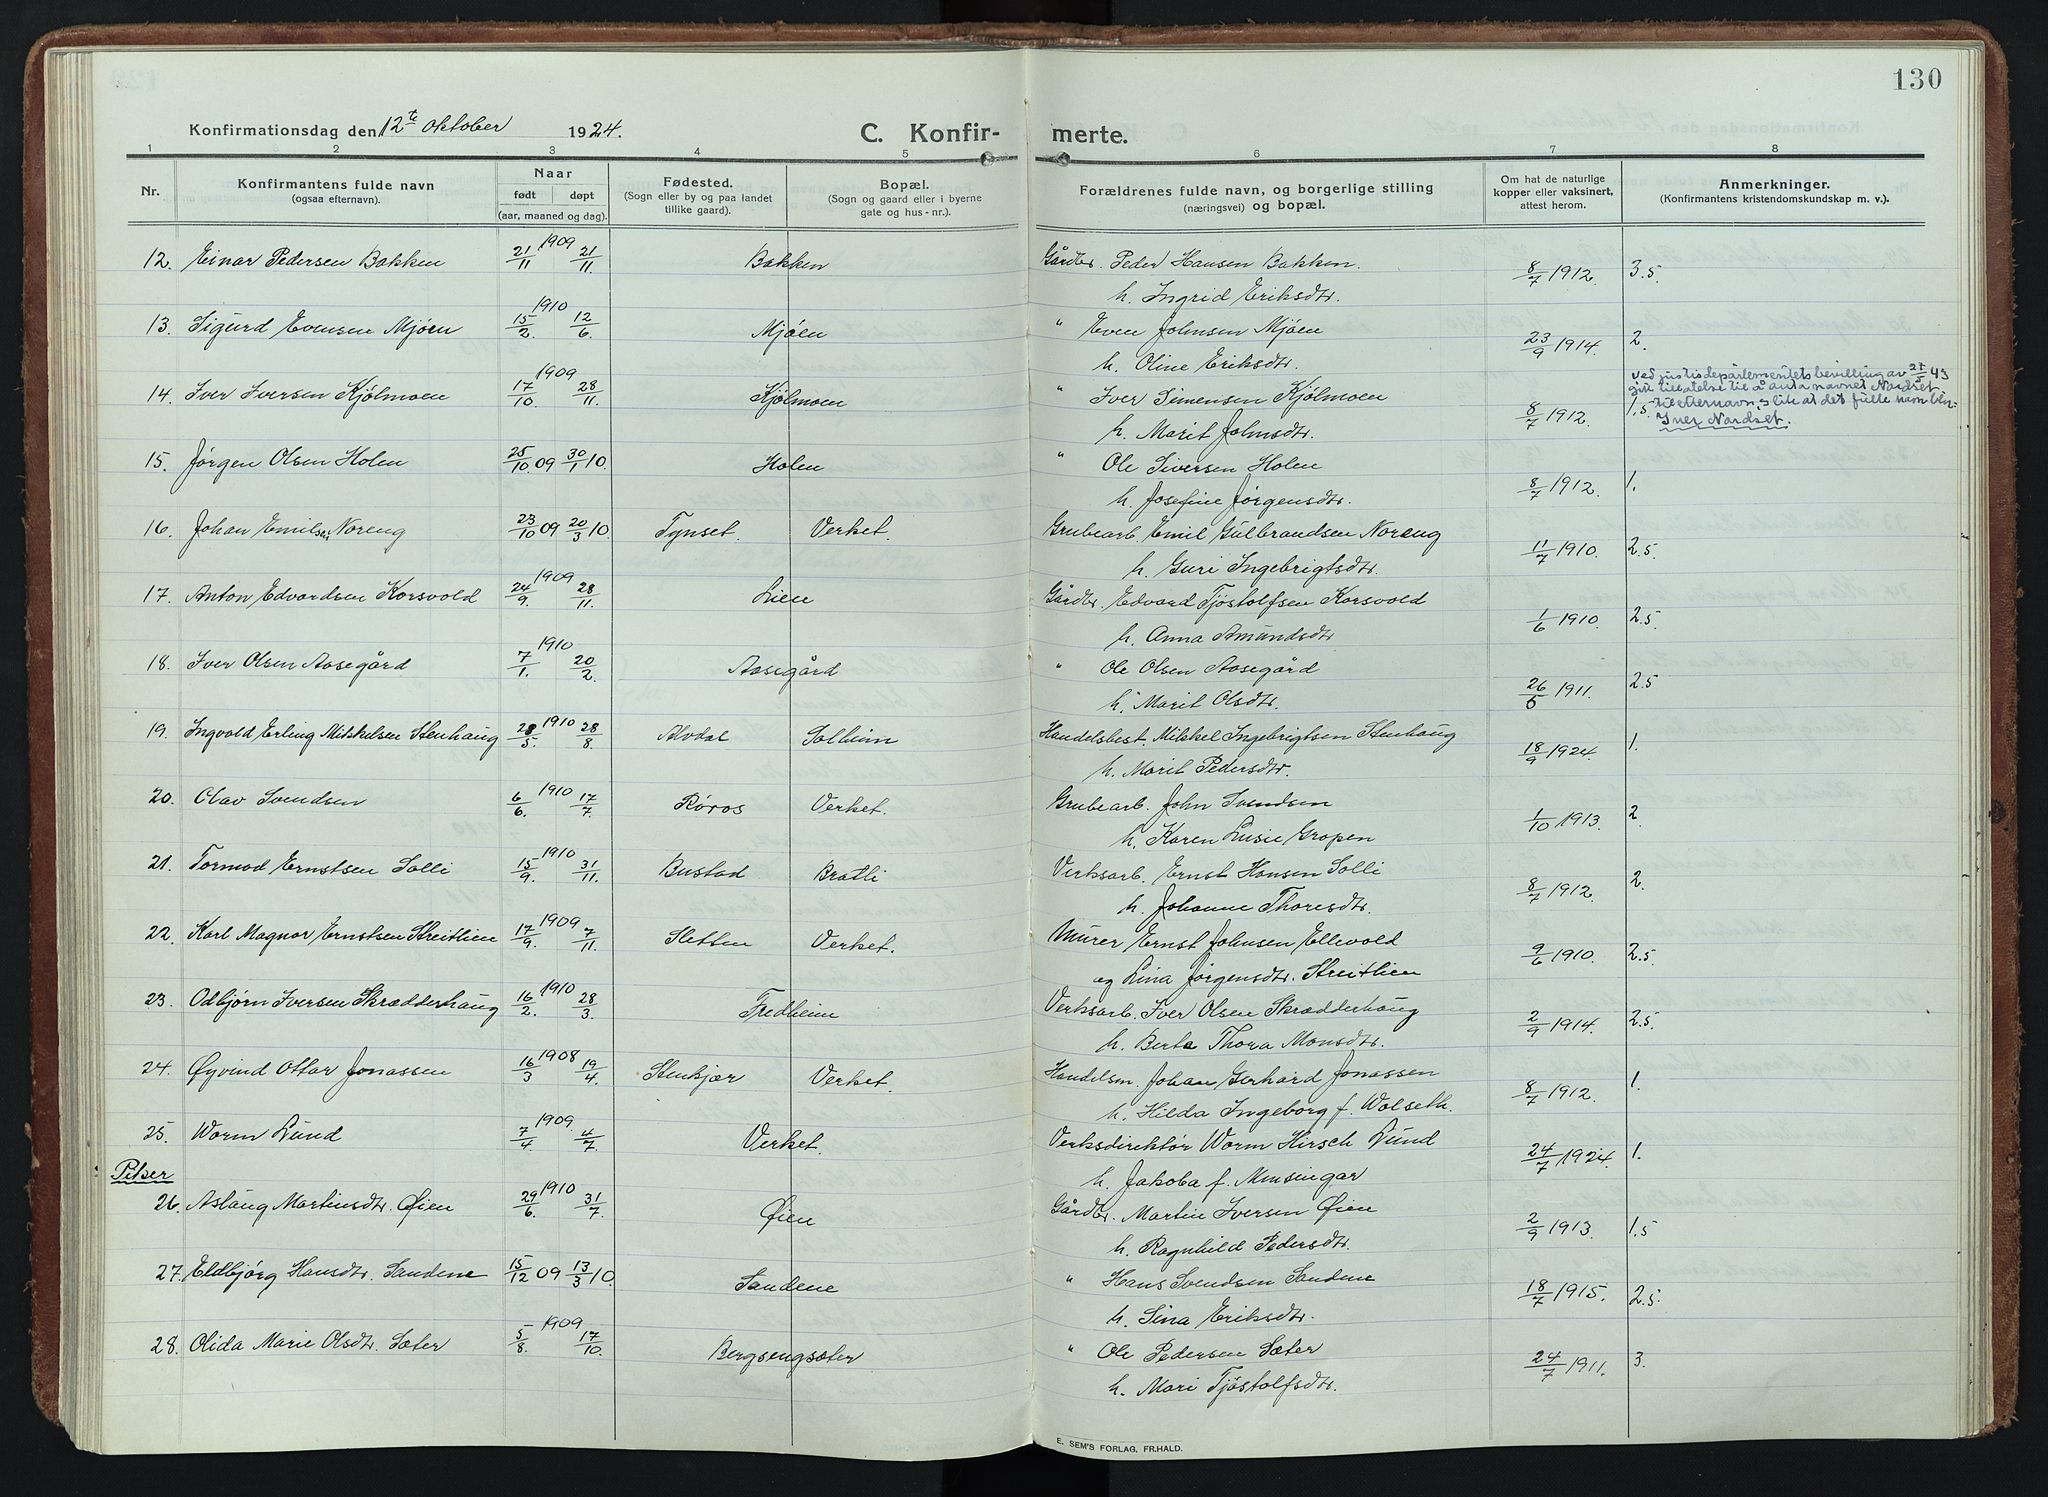 130
Konfirmationsdag den 12te oktober 1924. C. Konfir- merte.
1 2 3 4 5 6 7 8
Nr. Konfirmantens fulde navn (ogsaa efternavn). Naar født døpt (aar, maaned og dag). Fødested. (Sogn eller by og paa landet tillike gaard). Bopæl. (Sogn og gaard eller i byerne gate og hus-nr.). Forældrenes fulde navn, og borgerlige stilling (næringsvei) og bopæl. Om hat de naturlige kopper eller vaksinert, attest herom. Anmerkninger. (Konfirmantens kristendomskundskap m. v.).
12. Einar Pedersen Bakken 21/11 1909 21/11 Bakken Gårdbr. Peder Hansen Bakken. 8/7 1912. 3.5
h. Ingrid Eriksdtr.
13. Sigurd Evensen Mjøen 15/2. 1910 12/6. Mjøen " Even Johnsen Mjøen 23/9 1914. 2.
h. Oline Eriksdtr.
14. Iver Iversen Kjølmoen 17/10. 1909 28/11. Kjølmoen " Iver Simensen Kjølmoen 8/7 1912. 1.5
h. Marit Johnsdtr.
Ved justisdepartementets bevilling av 27/5 43
gitt tillatelse til å anta navnet Nordset
til etternavn, slik at det fulle navn blir
Iver Nordset.
15. Jørgen Olsen Holen 25/10. 09 30/1 10. Holen " Ole Siversen Holen 8/7 1912. 1.
h. Josefine Jørgensdtr.
16. Johan Emilsen Noreng 23/10 09 20/3 10. Tynset. Verket. Grubearb. Emil Gulbrandsen Noreng 11/7 1910. 2.5.
h. Guri Ingebrigtsdtr.
17. Anton Edvardsen Korsvold 24/9. 1909 28/11. Lien Gårdbr. Edvard Tjøstolfsen Korsvold 1/6 1910. 2.5.
h. Anna Amundsdtr
18. Iver Olsen Aasegård 7/1. 1910 20/2. Aasegård " Ole Olsen Aasegård 26/6 1911. 2.5
h. Marit Olsdtr.
19. Ingvald Erling Mikkelsen Stenhaug 28/5. 1910 28/8. Alvdal Solheim Handelsbest. Mikkel Ingebrigtsen Stenhaug 18/9 1924. 1.
h. Marit Pedersdtr.
20. Olav Svendsen 6/6. 1910 17/7. Røros Verket. Grubearb. John Svendsen 1/10 1913. 2.
h. Karen Lusie Gropen
21. Tormod Ernstsen Solli 15/9. 1910 31/11. Bustad Bratli Verksarb. Ernst Hansen Solli 8/7 1912. 2.
h. Johanne Thoresdtr.
22. Karl Magnar Ernstsen Streitlien 17/9. 1909 7/11. Sletten Verket. Murer Ernst Johnsen Ellevold 9/6 1910. 2.5.
og Lina Jørgensdtr. Streitlien
23. Odbjørn Iversen Skrædderhaug 16/2. 1910 28/3. Fredheim Verksarb. Iver Olsen Skrædderhaug 2/9 1914. 2.5.
h. Berte Thora Monsdtr.
24. Øyvind Ottar Jonassen 16/3 1908 19/4. Stenkjær Verket. Handelsm. Johan Gerhard Jonassen 8/7 1912. 1.
h. Hilda Ingeborg f. Wolseth.
25. Worm Lund 7/4 1909. 4/7. Verket. Verksdirektør Worm Hirsch Lund 24/7 1924. 1.
h. Jakoba f. Minsingar
Piker
26. Aslaug Martinsdtr. Øien 29/6. 1910 31/7. Øien Gårdbr. Martin Iversen Øien 2/9 1913. 1.5
h. Ragnhild Pedersdtr.
27. Eldbjørg Hansdtr. Sandene 15/12 09 13/3 10. Sandene " Hans Svendsen Sandene 18/7 1915. 2.5.
h. Sina Eriksdtr.
28. Olida Marie Olsdtr. Sæter 5/8. 1909 17/10. Bergsengsæter " Ole Pedersen Sæter 24/7 1911. 3.
h. Mari Tjøstolfsdtr.
E. SEM'S FORLAG, FR.HALD.